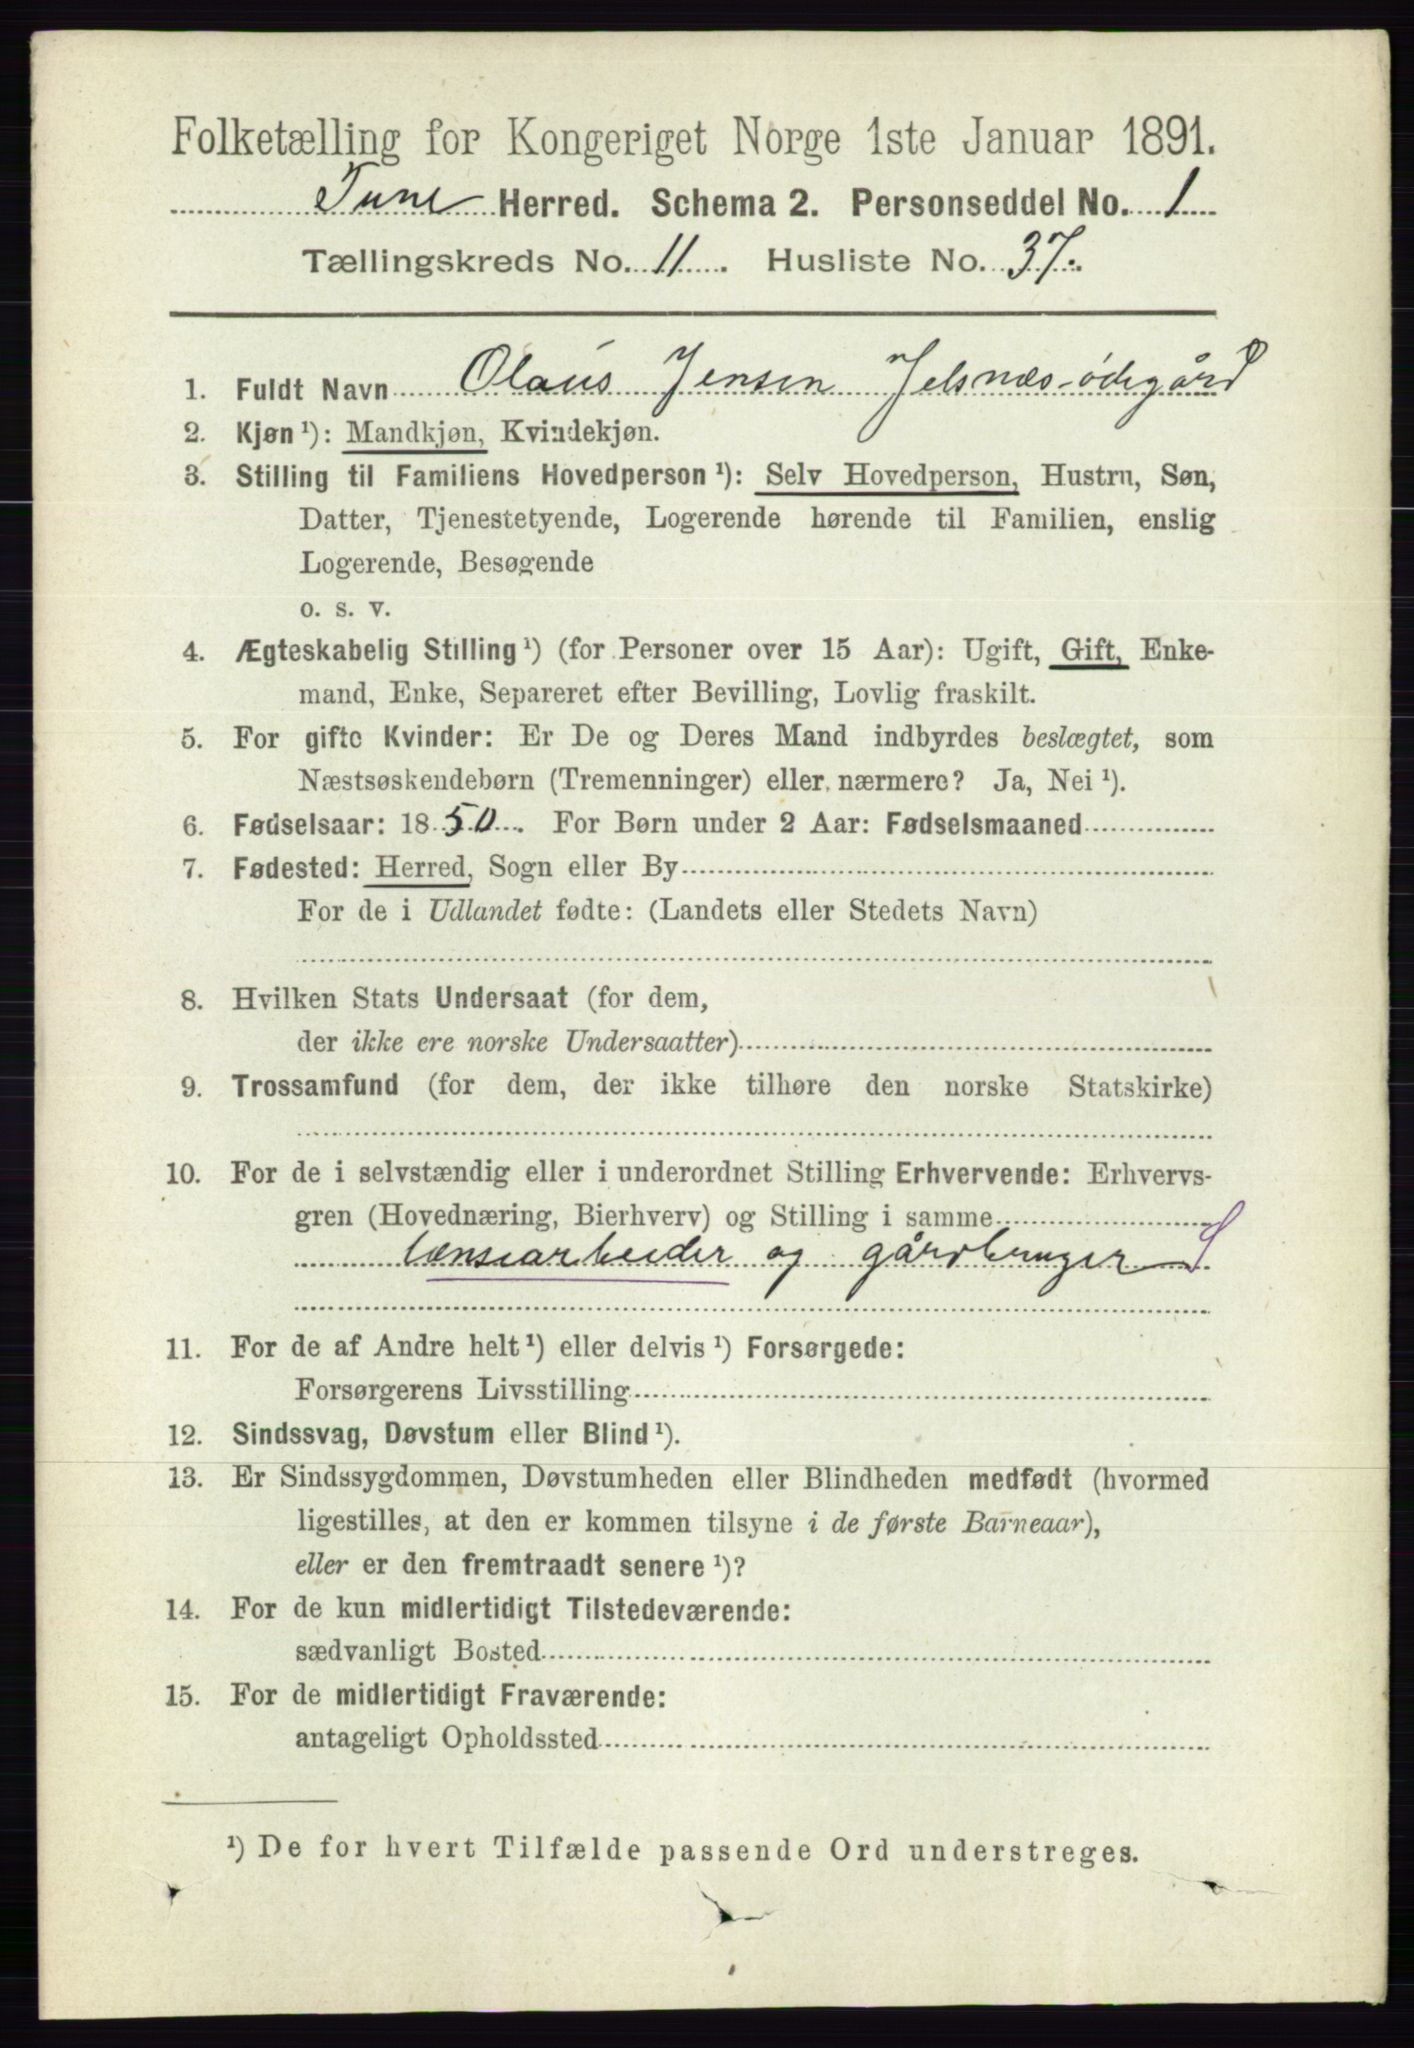 Folketælling for Kongeriget Norge 1ste Januar 1891.
Tune Herred. Schema 2. Personseddel No. 1
Tællingskreds No. 11. Husliste No. 37.
1. Fuldt Navn Olaus Jensen Jelsnæs-ødegård
2. Kjøn ¹): Mandkjøn, Kvindekjøn.
3. Stilling til Familiens Hovedperson ¹): Selv Hovedperson, Hustru, Søn,
Datter, Tjenestetyende, Logerende hørende til Familien, enslig
Logerende, Besøgende
o. s. v.
4. Ægteskabelig Stilling ¹) (for Personer over 15 Aar): Ugift, Gift, Enke-
mand, Enke, Separeret efter Bevilling, Lovlig fraskilt.
5. For gifte Kvinder: Er De og Deres Mand indbyrdes beslægtet, som
Næstsøskendebørn (Tremenninger) eller nærmere? Ja, Nei ¹).
6. Fødselsaar: 1850. For Børn under 2 Aar: Fødselsmaaned
7. Fødested: Herred, Sogn eller By
For de i Udlandet fødte: (Landets eller Stedets Navn)
8. Hvilken Stats Undersaat (for dem,
der ikke ere norske Undersaatter)
9. Trossamfund (for dem, der ikke tilhøre den norske Statskirke)
10. For de i selvstændig eller i underordnet Stilling Erhvervende: Erhvervs-
gren (Hovednæring, Bierhverv) og Stilling i samme
lænsearbeider og gårdbruger S
11. For de af Andre helt ¹) eller delvis ¹) Forsørgede:
Forsørgerens Livsstilling
12. Sindssvag, Døvstum eller Blind ¹).
13. Er Sindssygdommen, Døvstumheden eller Blindheden medfødt (hvormed
ligestilles, at den er kommen tilsyne i de første Barneaar),
eller er den fremtraadt senere ¹)?
14. For de kun midlertidigt Tilstedeværende:
sædvanligt Bosted
15. For de midlertidigt Fraværende:
antageligt Opholdssted
¹) De for hvert Tilfælde passende Ord understreges.